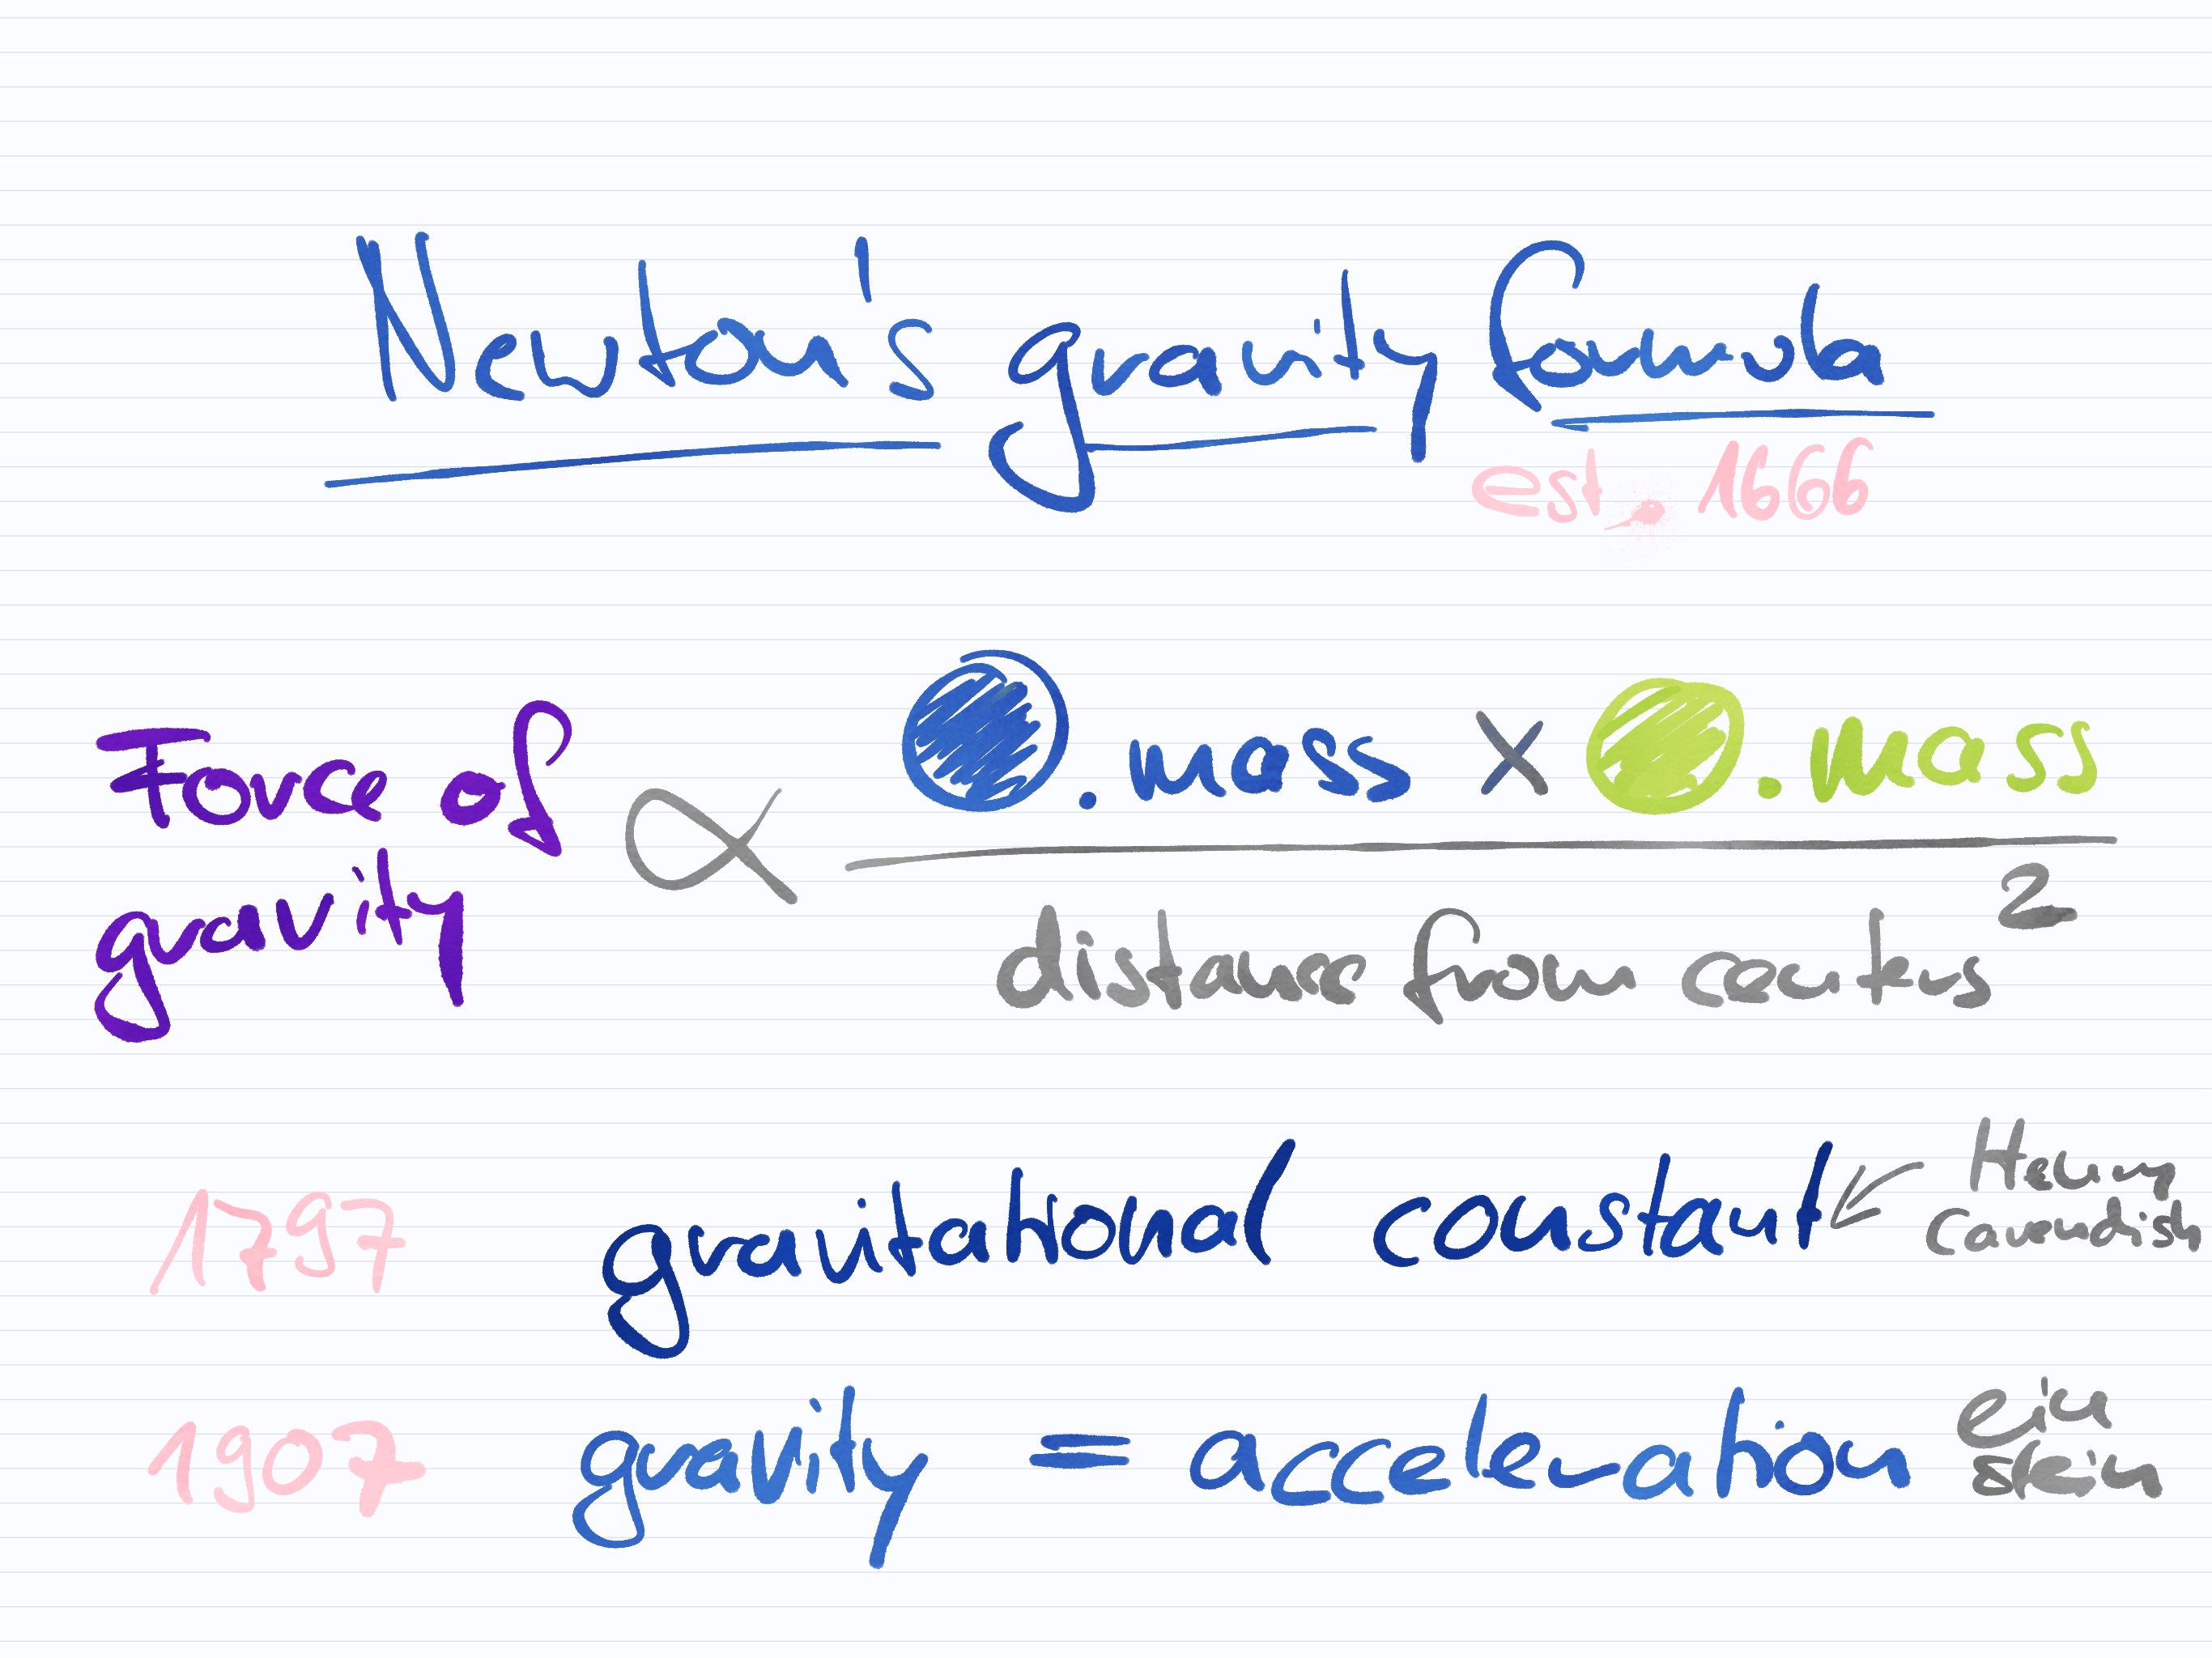 Newton's gravity formula
est. 1666
Force of gravity ∝ .mass x .mass
distance from centers²
1797 gravitational constant Henry Cavendish
1907 gravity = acceleration einstein